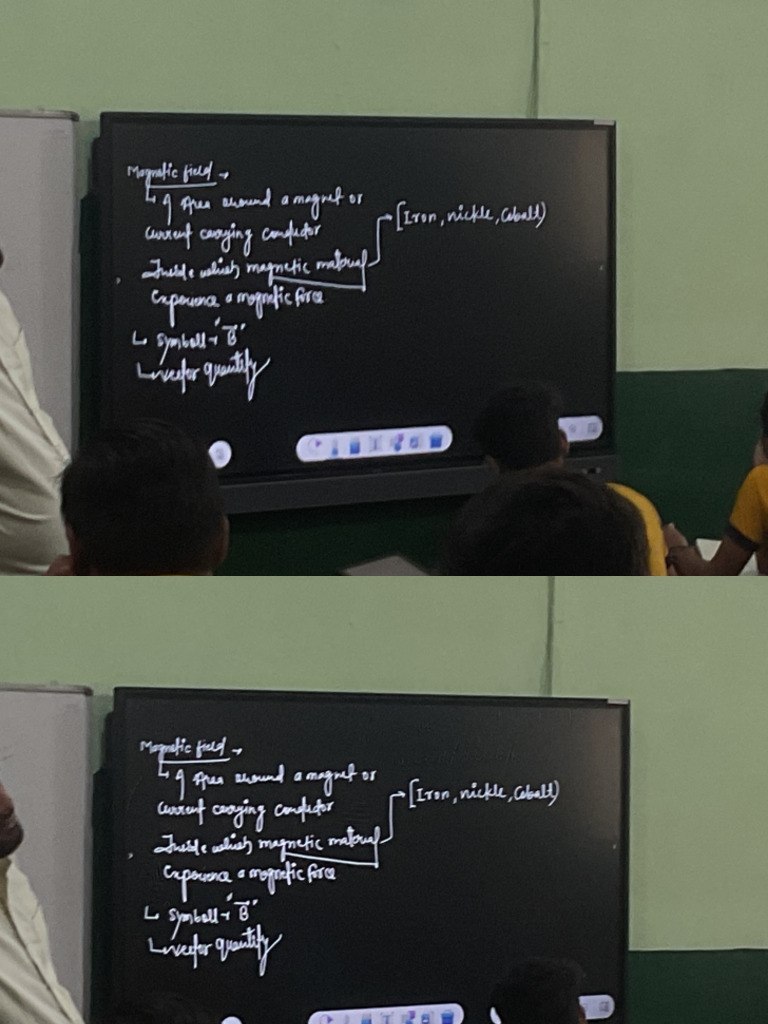 Magnetic field →
↳ Area around a magnet or
current carrying conductor
Inside which magnetic material → [Iron, nickle, Cobalt)
Experience a magnetic force
↳ symboll → "B⃗"
↳ vector quantity
Magnetic field →
↳ Area around a magnet or
current carrying conductor
Inside which magnetic material → [Iron, nickle, Cobalt)
Experience a magnetic force
↳ symboll → "B⃗"
↳ vector quantity